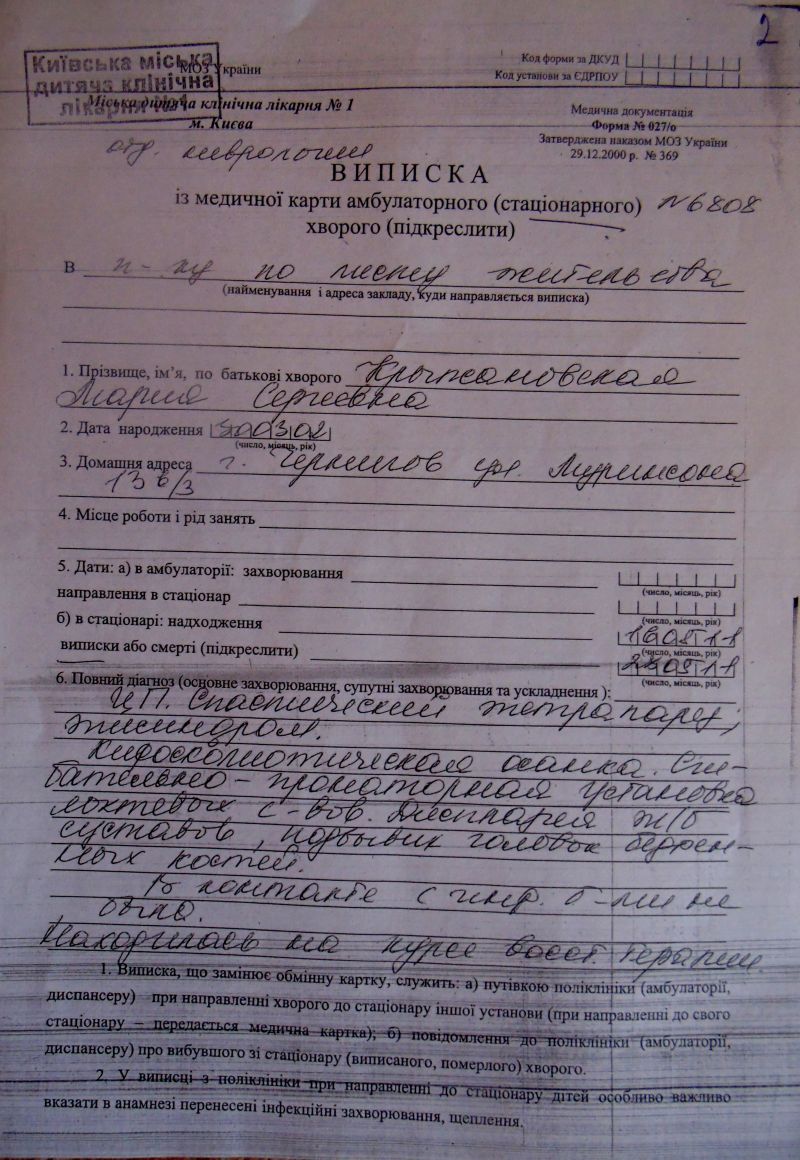 2
Київська міська
дитяча клінічна
лікарня №1
МОЗ України
Міська дитяча клінічна лікарня № 1
м. Києва
Код форми за ДКУД
Код установи за ЄДРПОУ
Медична документація
Форма № 027/о
Затверджена наказом МОЗ України
29.12.2000 р. № 369
отд. неврологии
ВИПИСКА
із медичної карти амбулаторного (стаціонарного) №6808
хворого (підкреслити)
В п-ку по месту жительства
(найменування і адреса закладу, куди направляється виписка)
1. Прізвище, ім’я, по батькові хворого Крыжановская
Мария Сергеевна
2. Дата народження 300302
(число, місяць, рік)
3. Домашня адреса г. Чернигов ул.
4. Місце роботи і рід занять
5. Дати: а) в амбулаторії: захворювання
(число, місяць, рік)
направлення в стаціонар
(число, місяць, рік)
б) в стаціонарі: надходження
(число, місяць, рік)
виписки або смерті (підкреслити)
(число, місяць, рік)
6. Повний діагноз (основне захворювання, супутні захворювання та ускладнення ):
Спастический тетрапарез,
Кифосколиотическая осанка. Сги-
бательно - пронаторная установка
локтевых с-вов. Дисплазия т/б
суставов, подвывих головок бедрен-
ных костей.
В контакте с инф. б-ми не
было.
Находилась на курсе восст. терапии.
1. Виписка, що замінює обмінну картку, служить: а) путівкою поліклініки (амбулаторії,
диспансеру) при направленні хворого до стаціонару іншої установи (при направленні до свого
стаціонару – передається медична картка); б) повідомлення до поліклініки (амбулаторії,
диспансеру) про вибувшого зі стаціонару (виписаного, померлого) хворого.
2. У виписці з поліклініки при направленні до стаціонару дітей особливо важливо
вказати в анамнезі перенесені інфекційні захворювання, щеплення.